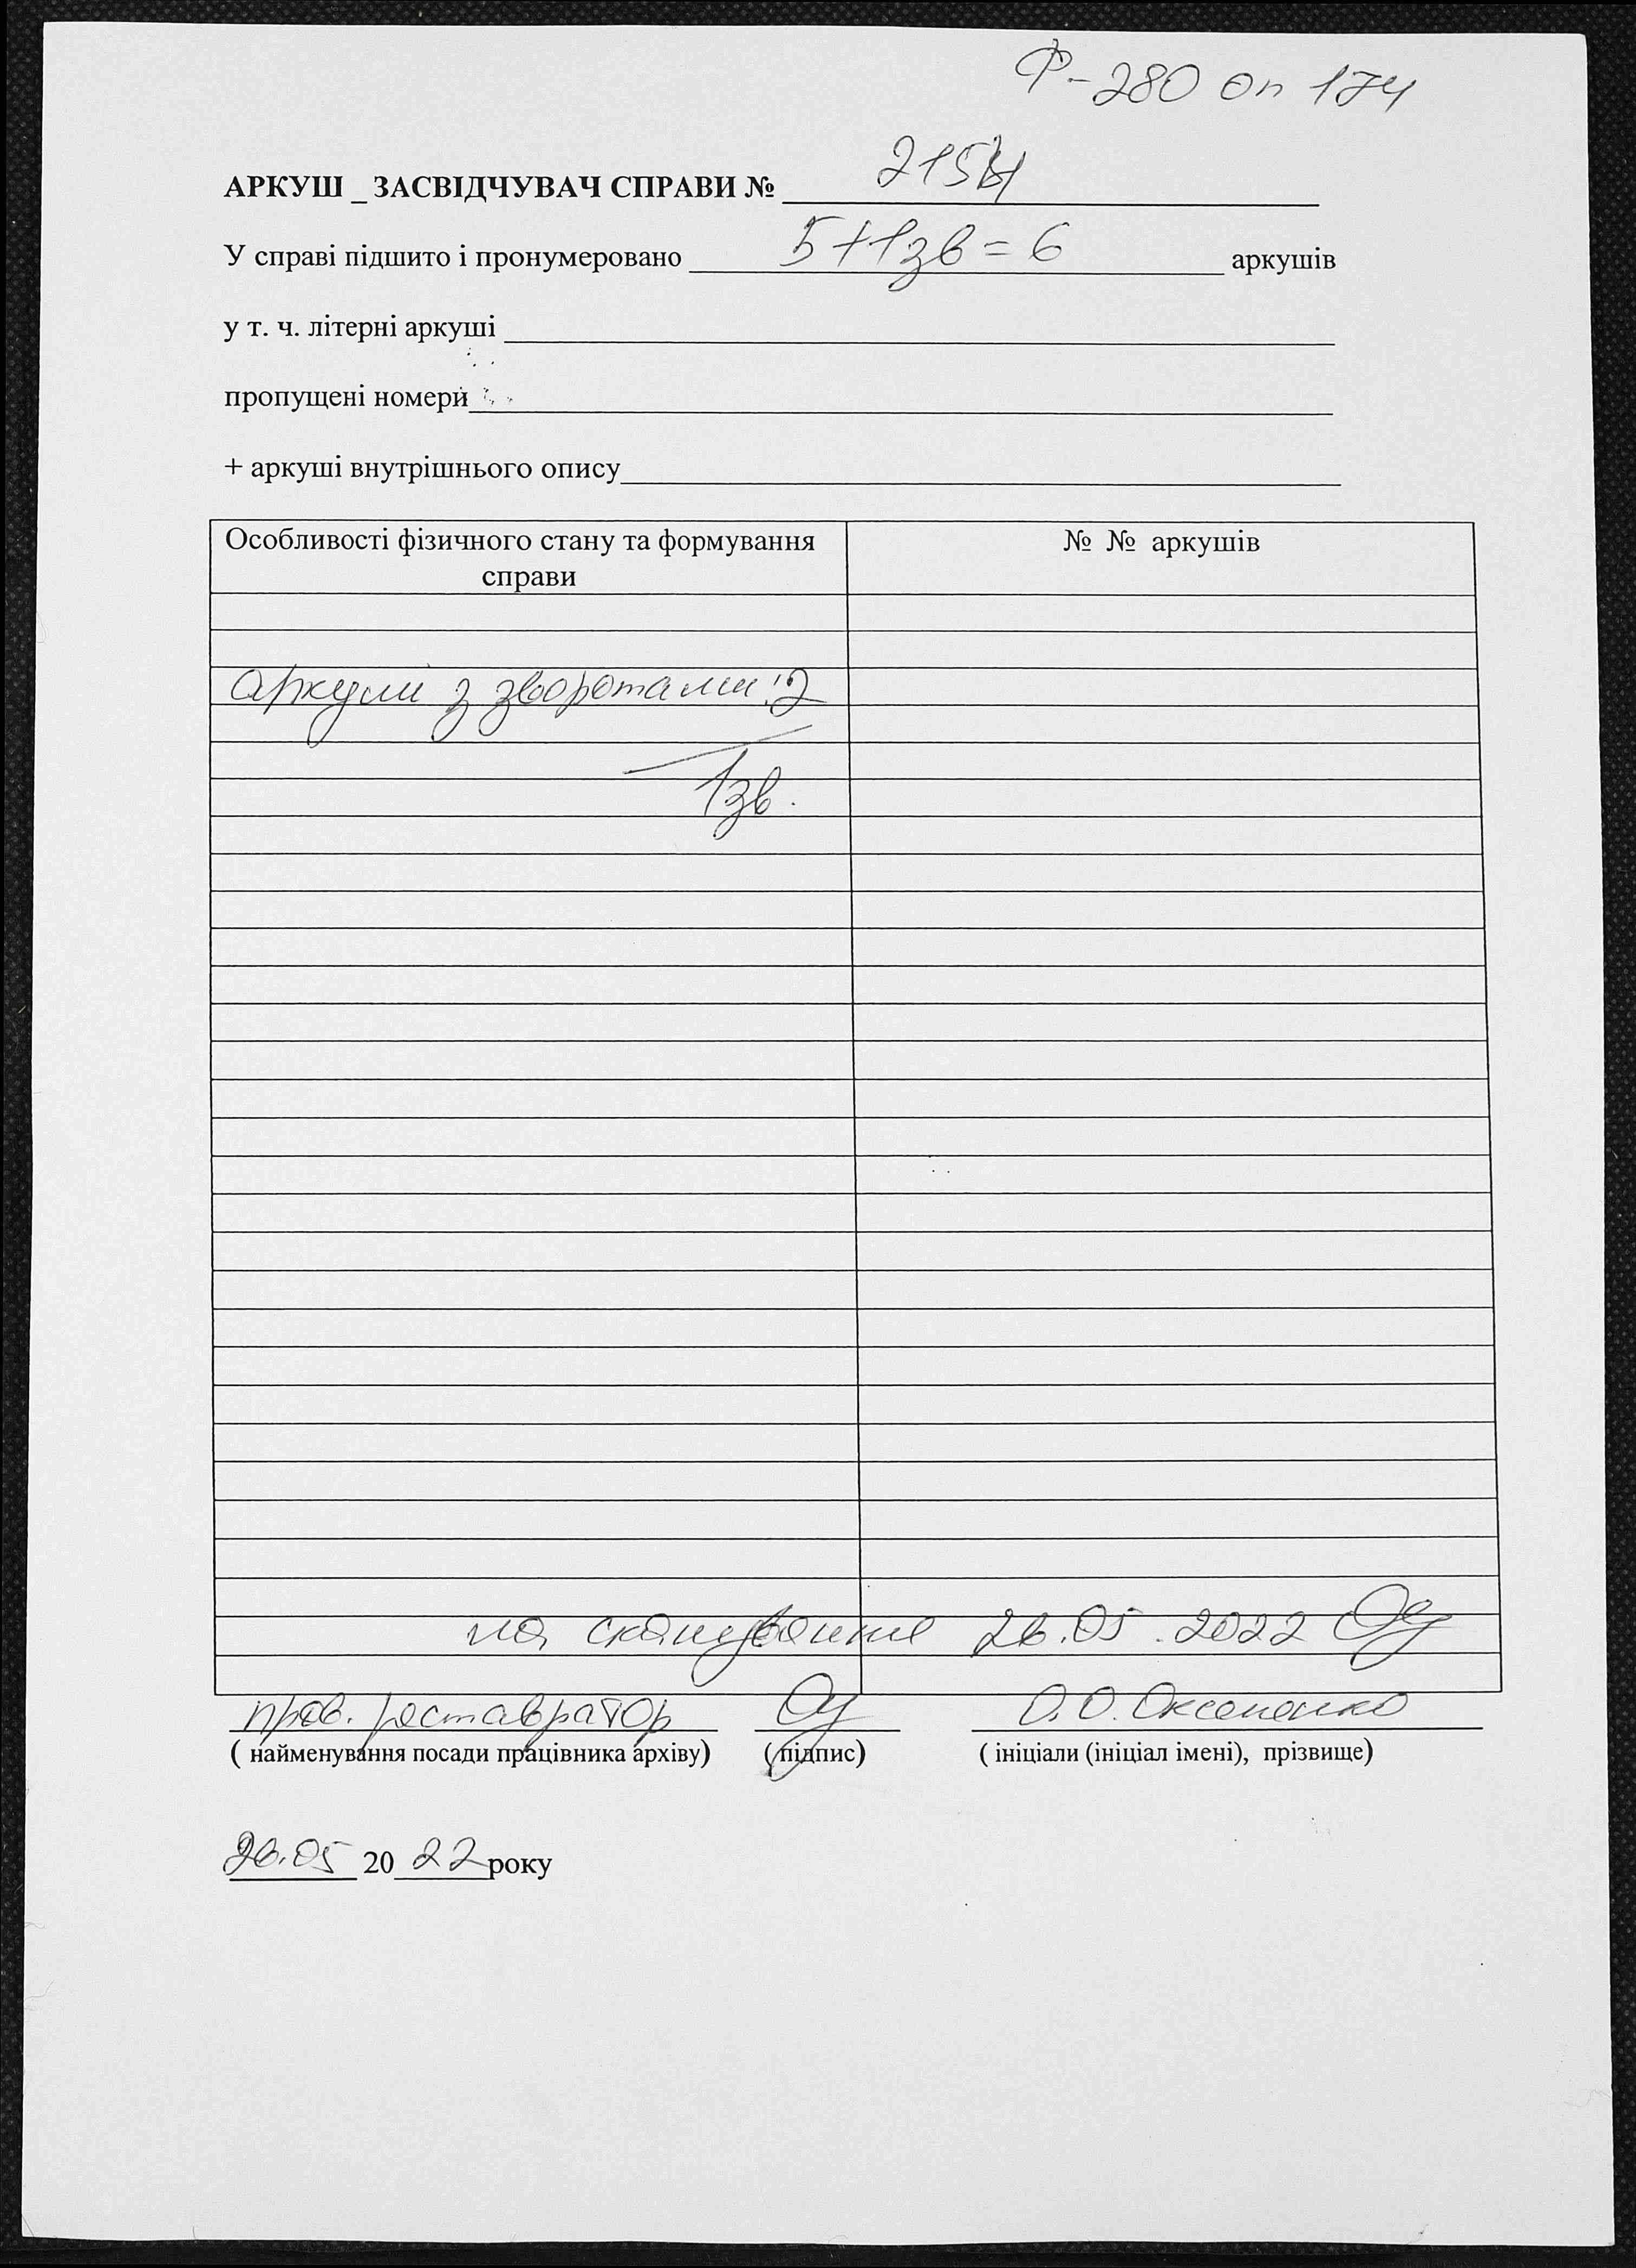 Ф-280 оп 174
АРКУШ _ ЗАСВІДЧУВАЧ СПРАВИ №
У справі підшито і пронумеровано 5+1зв=6 аркушів
у т. ч. літерні аркуші
пропущені номери
+ аркуші внутрішнього опису
Особливості фізичного стану та формування справи № № аркушів
аркуші з зворотами: 2
1зв.
на сканування 26.05.2022
пров. реставратор О.О. Оксененко
( найменування посади працівника архіву) (підпис) ( ініціали (ініціал імені), прізвище)
26.05 2022 року